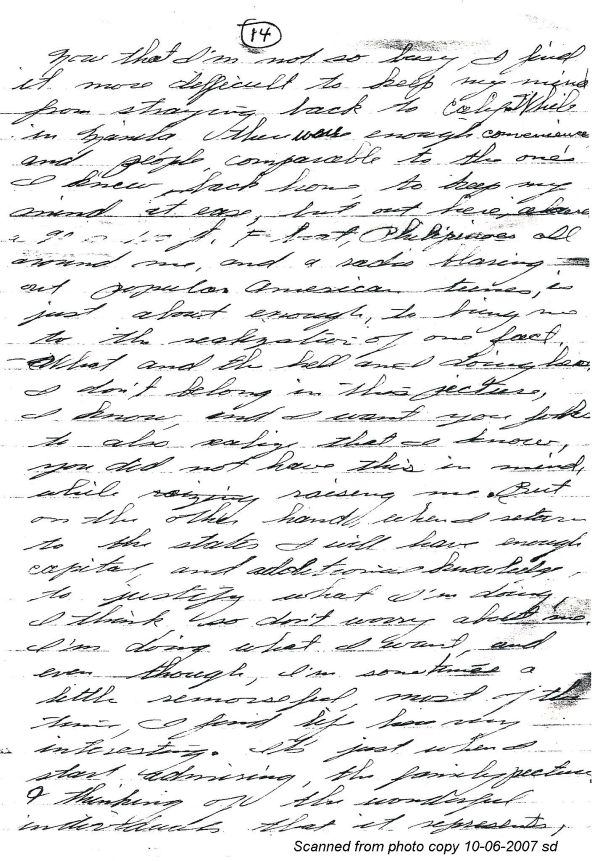 14
Now that I'm not so busy I find
it more difficult to keep my mind
from straying back to Calif. While
in Manila there were enough convenience
and people, comparable to the one's
I knew, back home, to keep my
mind at ease, but out here, above
Philipinoes all
around me, and a radio blaring
out popular American tunes, is
just about enough, to bring me
to the realization of one fact.
What and the hell am I doing here.
I don't belong in this pecture,
I know, and I want you folks
to also realize that I know,
you did not have this in mind,
while raizing raising me. But
on the other hand, when I return
to the states I will have enough
capital, and additional knowledge,
to justify what I'm doing,
I think so don't worry about me.
I'm doing what I want, and
even though, I'm sometimes a
little remorseful, most of the
time, I find life here very
interesting. It's just when I
start admiring, the family pecture
& thinking of the wonderful
individuals that it represents,
Scanned from photo copy 10-06-2007 sd